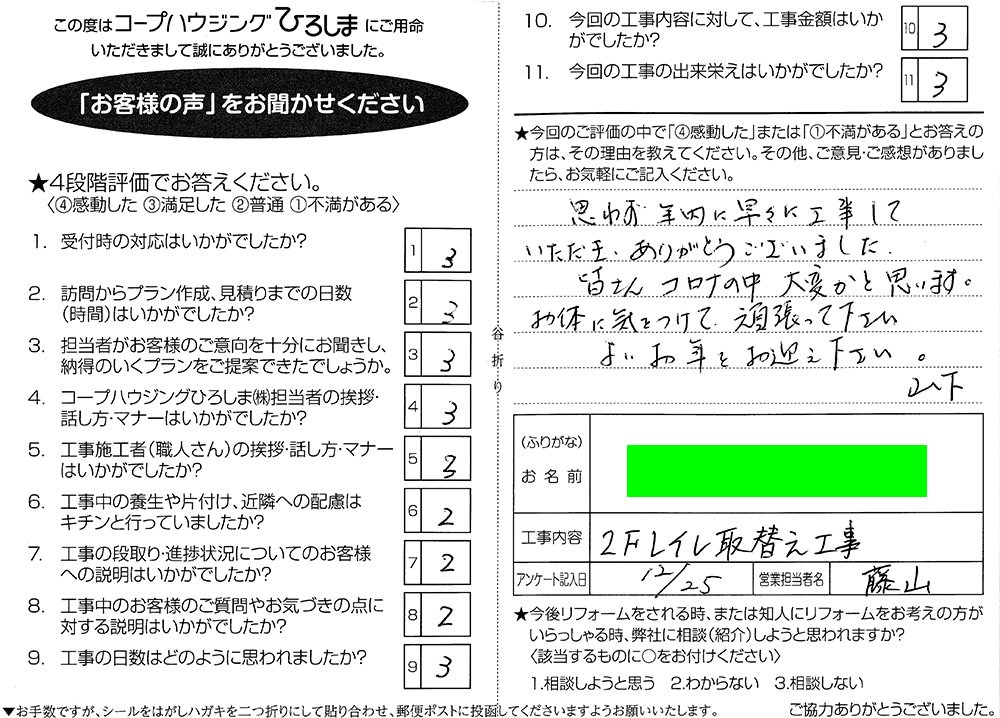 この度はコープハウジングひろしまにご用命
いただきまして誠にありがとうございました。
「お客様の声」をお聞かせください
★4段階評価でお答えください。
〈④感動した ③満足した ②普通 ①不満がある〉
1. 受付時の対応はいかがでしたか?
1 3
2. 訪問からプラン作成、見積りまでの日数
(時間)はいかがでしたか?
2 3
3. 担当者がお客様のご意向を十分にお聞きし、
納得のいくプランをご提案できたでしょうか。
3 3
4. コープハウジングひろしま㈱担当者の挨拶・
話し方・マナーはいかがでしたか?
4 3
5. 工事施工者(職人さん)の挨拶・話し方・マナー
はいかがでしたか?
5 3
6. 工事中の養生や片付け、近隣への配慮は
キチンと行っていましたか?
6 2
7. 工事の段取り・進捗状況についてのお客様
への説明はいかがでしたか?
7 2
8. 工事中のお客様のご質問やお気づきの点に
対する説明はいかがでしたか?
8 2
9. 工事の日数はどのように思われましたか?
9 3
▼お手数ですが、シールをはがしハガキを二つ折りにして貼り合わせ、郵便ポストに投函してくださいますようお願いいたします。
谷折り
10. 今回の工事内容に対して、工事金額はいか
がでしたか?
10 3
11. 今回の工事の出来栄えはいかがでしたか?
11 3
★今回のご評価の中で「④感動した」または「①不満がある」とお答えの
方は、その理由を教えてください。その他、ご意見・ご感想がありまし
たら、お気軽にご記入ください。
思わず年内に早々に工事して
いただき、ありがとうございました。
皆さんコロナの中大変かと思います。
お体に気をつけて頑張って下さい
よいお年をお迎え下さい。
山下
(ふりがな)
お名前
工事内容 2Fトイレ取替え工事
アンケート記入日 12/25 営業担当者名 藤山
★今後リフォームをされる時、または知人にリフォームをお考えの方が
いらっしゃる時、弊社に相談(紹介)しようと思われますか?
〈該当するものに○をお付けください〉
1.相談しようと思う 2.わからない 3.相談しない
ご協力ありがとうございました。